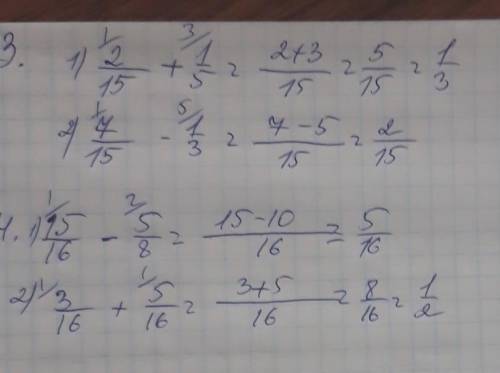 3. 1) ¹⁄2/15 + ³⁄1/5 = (2+3)/15 = 5/15 = 1/3
2) ¹⁄7/15 - ⁵⁄1/3 = (7-5)/15 = 2/15
4. 1) ¹⁄15/16 - ²⁄5/8 = (15-10)/16 = 5/16
2) ¹⁄3/16 + ¹⁄5/16 = (3+5)/16 = 8/16 = 1/2